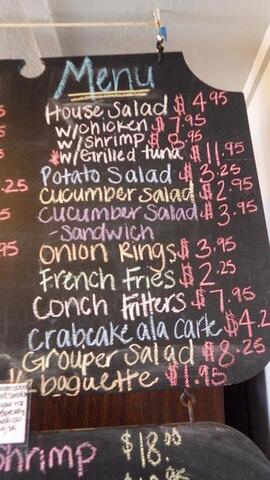 Menu
House Salad $4.95
w/chicken $7.95
w/shrimp $8.95
*w/Grilled tuna $11.95
Potato Salad $3.25
Cucumber Salad $2.95
Cucumber Salad $3.95
-Sandwich
Onion Rings $3.95
French Fries $2.25
Conch Fritters $7.95
Crabcake ala Carte $4.2
Grouper Salad $8.25
1/2 baguette $1.95
.25
95
shrimp $18.00